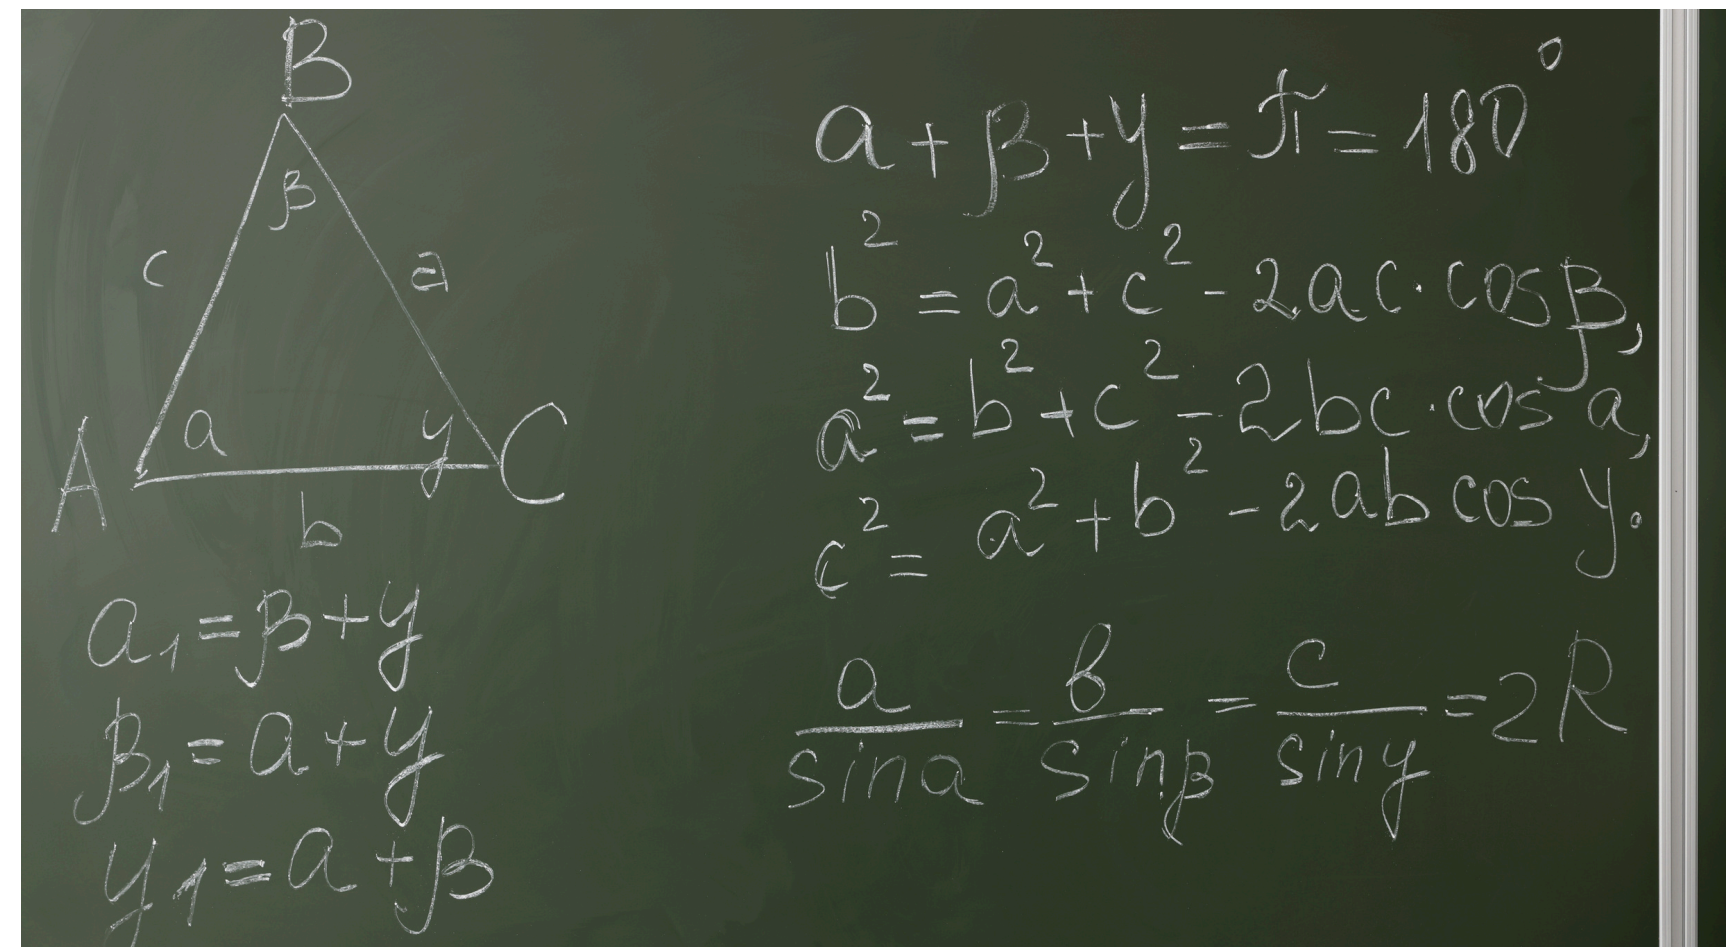 B
β
c
a
a
y
A
C
b
a₁ = β + y
β₁ = a + y
y₁ = a + β
a + β + y = π = 180°
b² = a² + c² - 2ac · cos β,
a² = b² + c² - 2bc · cos a,
c² = a² + b² - 2ab cos y.
a/sin a = b/sin β = c/sin y = 2R